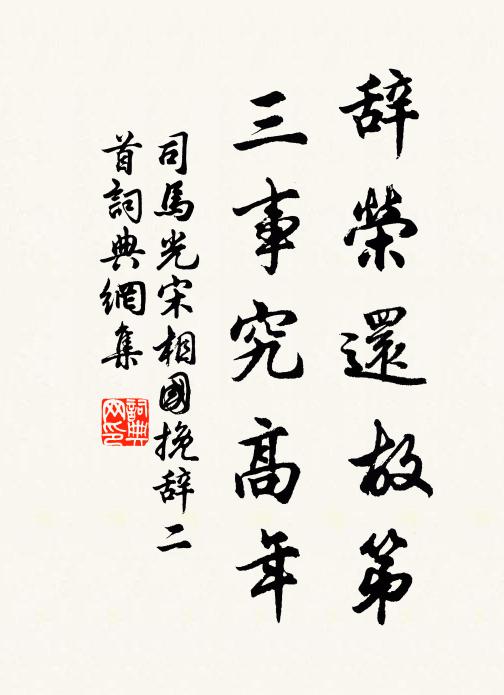 辞榮還故第
三事究高年
司馬光宋相國挽辞二
首詞典網集
詞典
网印